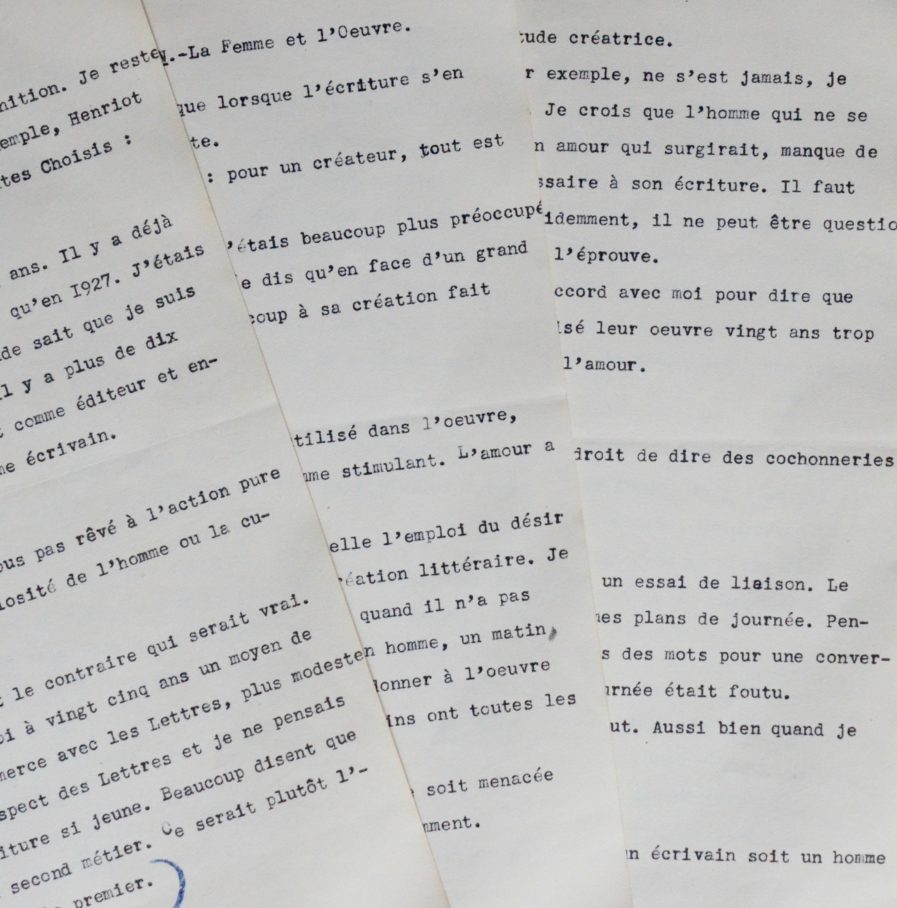 nition. Je reste
emple, Henriot
tes Choisis :
ans. Il y a déjà
qu'en I927. J'étais
de sait que je suis
l y a plus de dix
comme éditeur et en-
ne écrivain.
ous pas rêvé à l'action pure
iosité de l'homme ou la cu-
le contraire qui serait vrai.
oi à vingt cinq ans un moyen de
merce avec les Lettres, plus modeste
spect des Lettres et je ne pensais
iture si jeune. Beaucoup disent que
second métier. Ce serait plutôt l'-
premier.
.-La Femme et l'Oeuvre.
que lorsque l'écriture s'en
te.
: pour un créateur, tout est
'étais beaucoup plus préoccupé
e dis qu'en face d'un grand
coup à sa création fait
tilisé dans l'oeuvre,
me stimulant. L'amour a
elle l'emploi du désir
éation littéraire. Je
quand il n'a pas
n homme, un matin,
donner à l'oeuvre
ins ont toutes les
soit menacée
mment.
tude créatrice.
r exemple, ne s'est jamais, je
Je crois que l'homme qui ne se
n amour qui surgirait, manque de
ssaire à son écriture. Il faut
idemment, il ne peut être questio
l'éprouve.
ccord avec moi pour dire que
isé leur oeuvre vingt ans trop
l'amour.
droit de dire des cochonneries
un essai de liaison. Le
mes plans de journée. Pen-
s des mots pour une conver-
urnée était foutu.
ut. Aussi bien quand je
n écrivain soit un homme